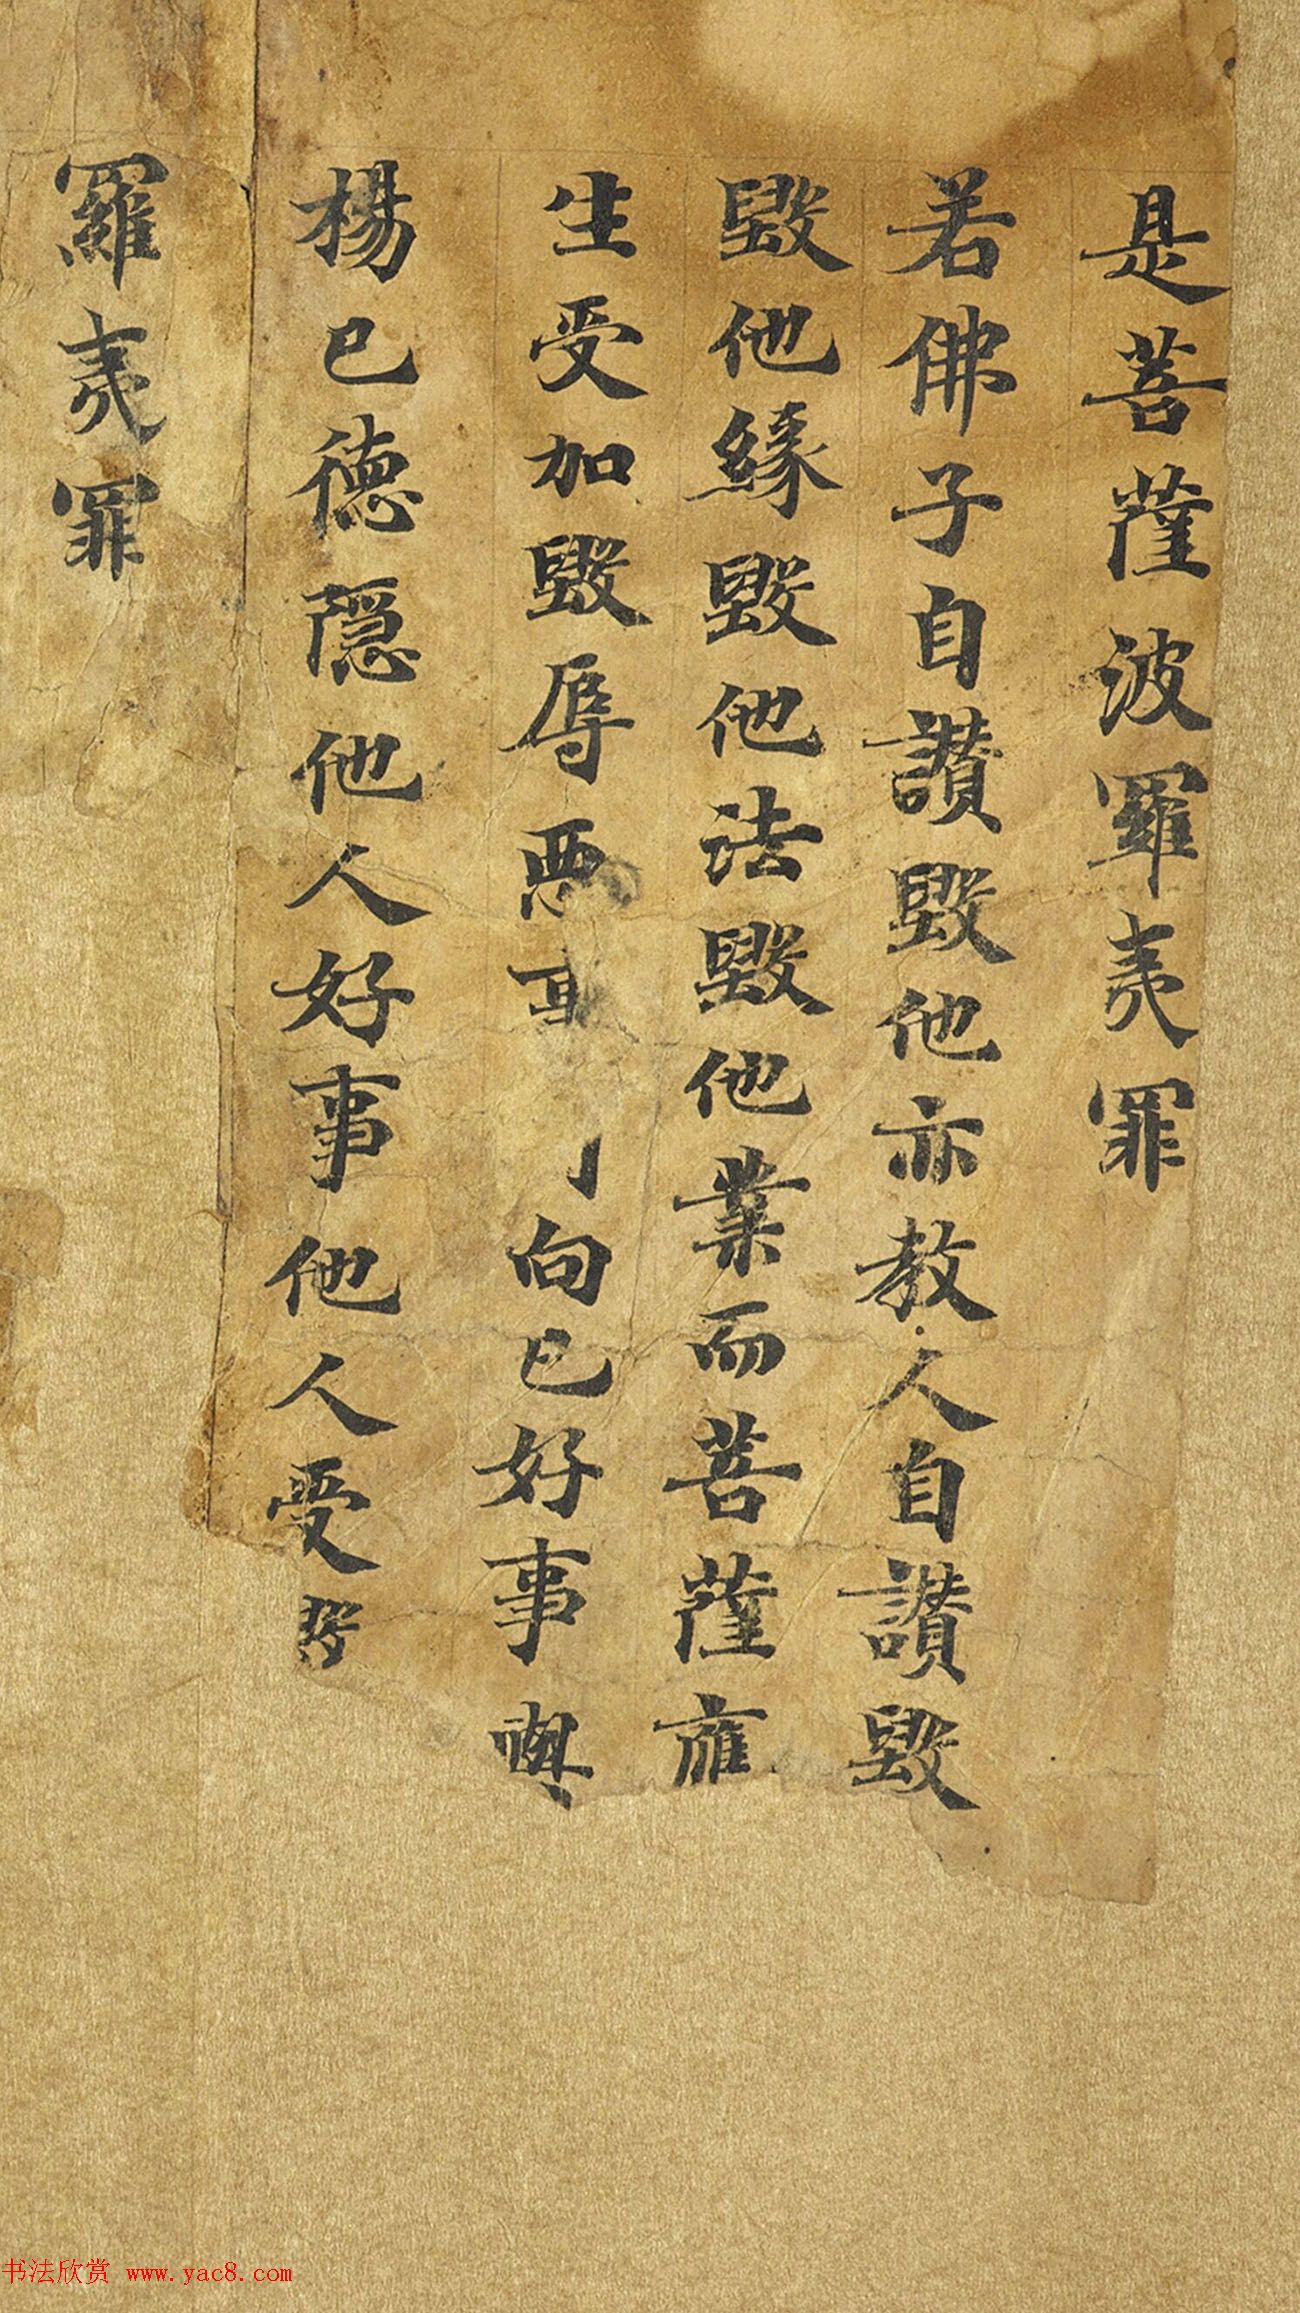 是菩薩波羅夷罪
若佛子自讃毀他亦教人自讃毀
毀他緣毀他法毀他業而菩薩應
生受加毀辱惡事向已好事與
揚已德隱他人好事他人受
羅夷罪
书法欣赏 www.yac8.com